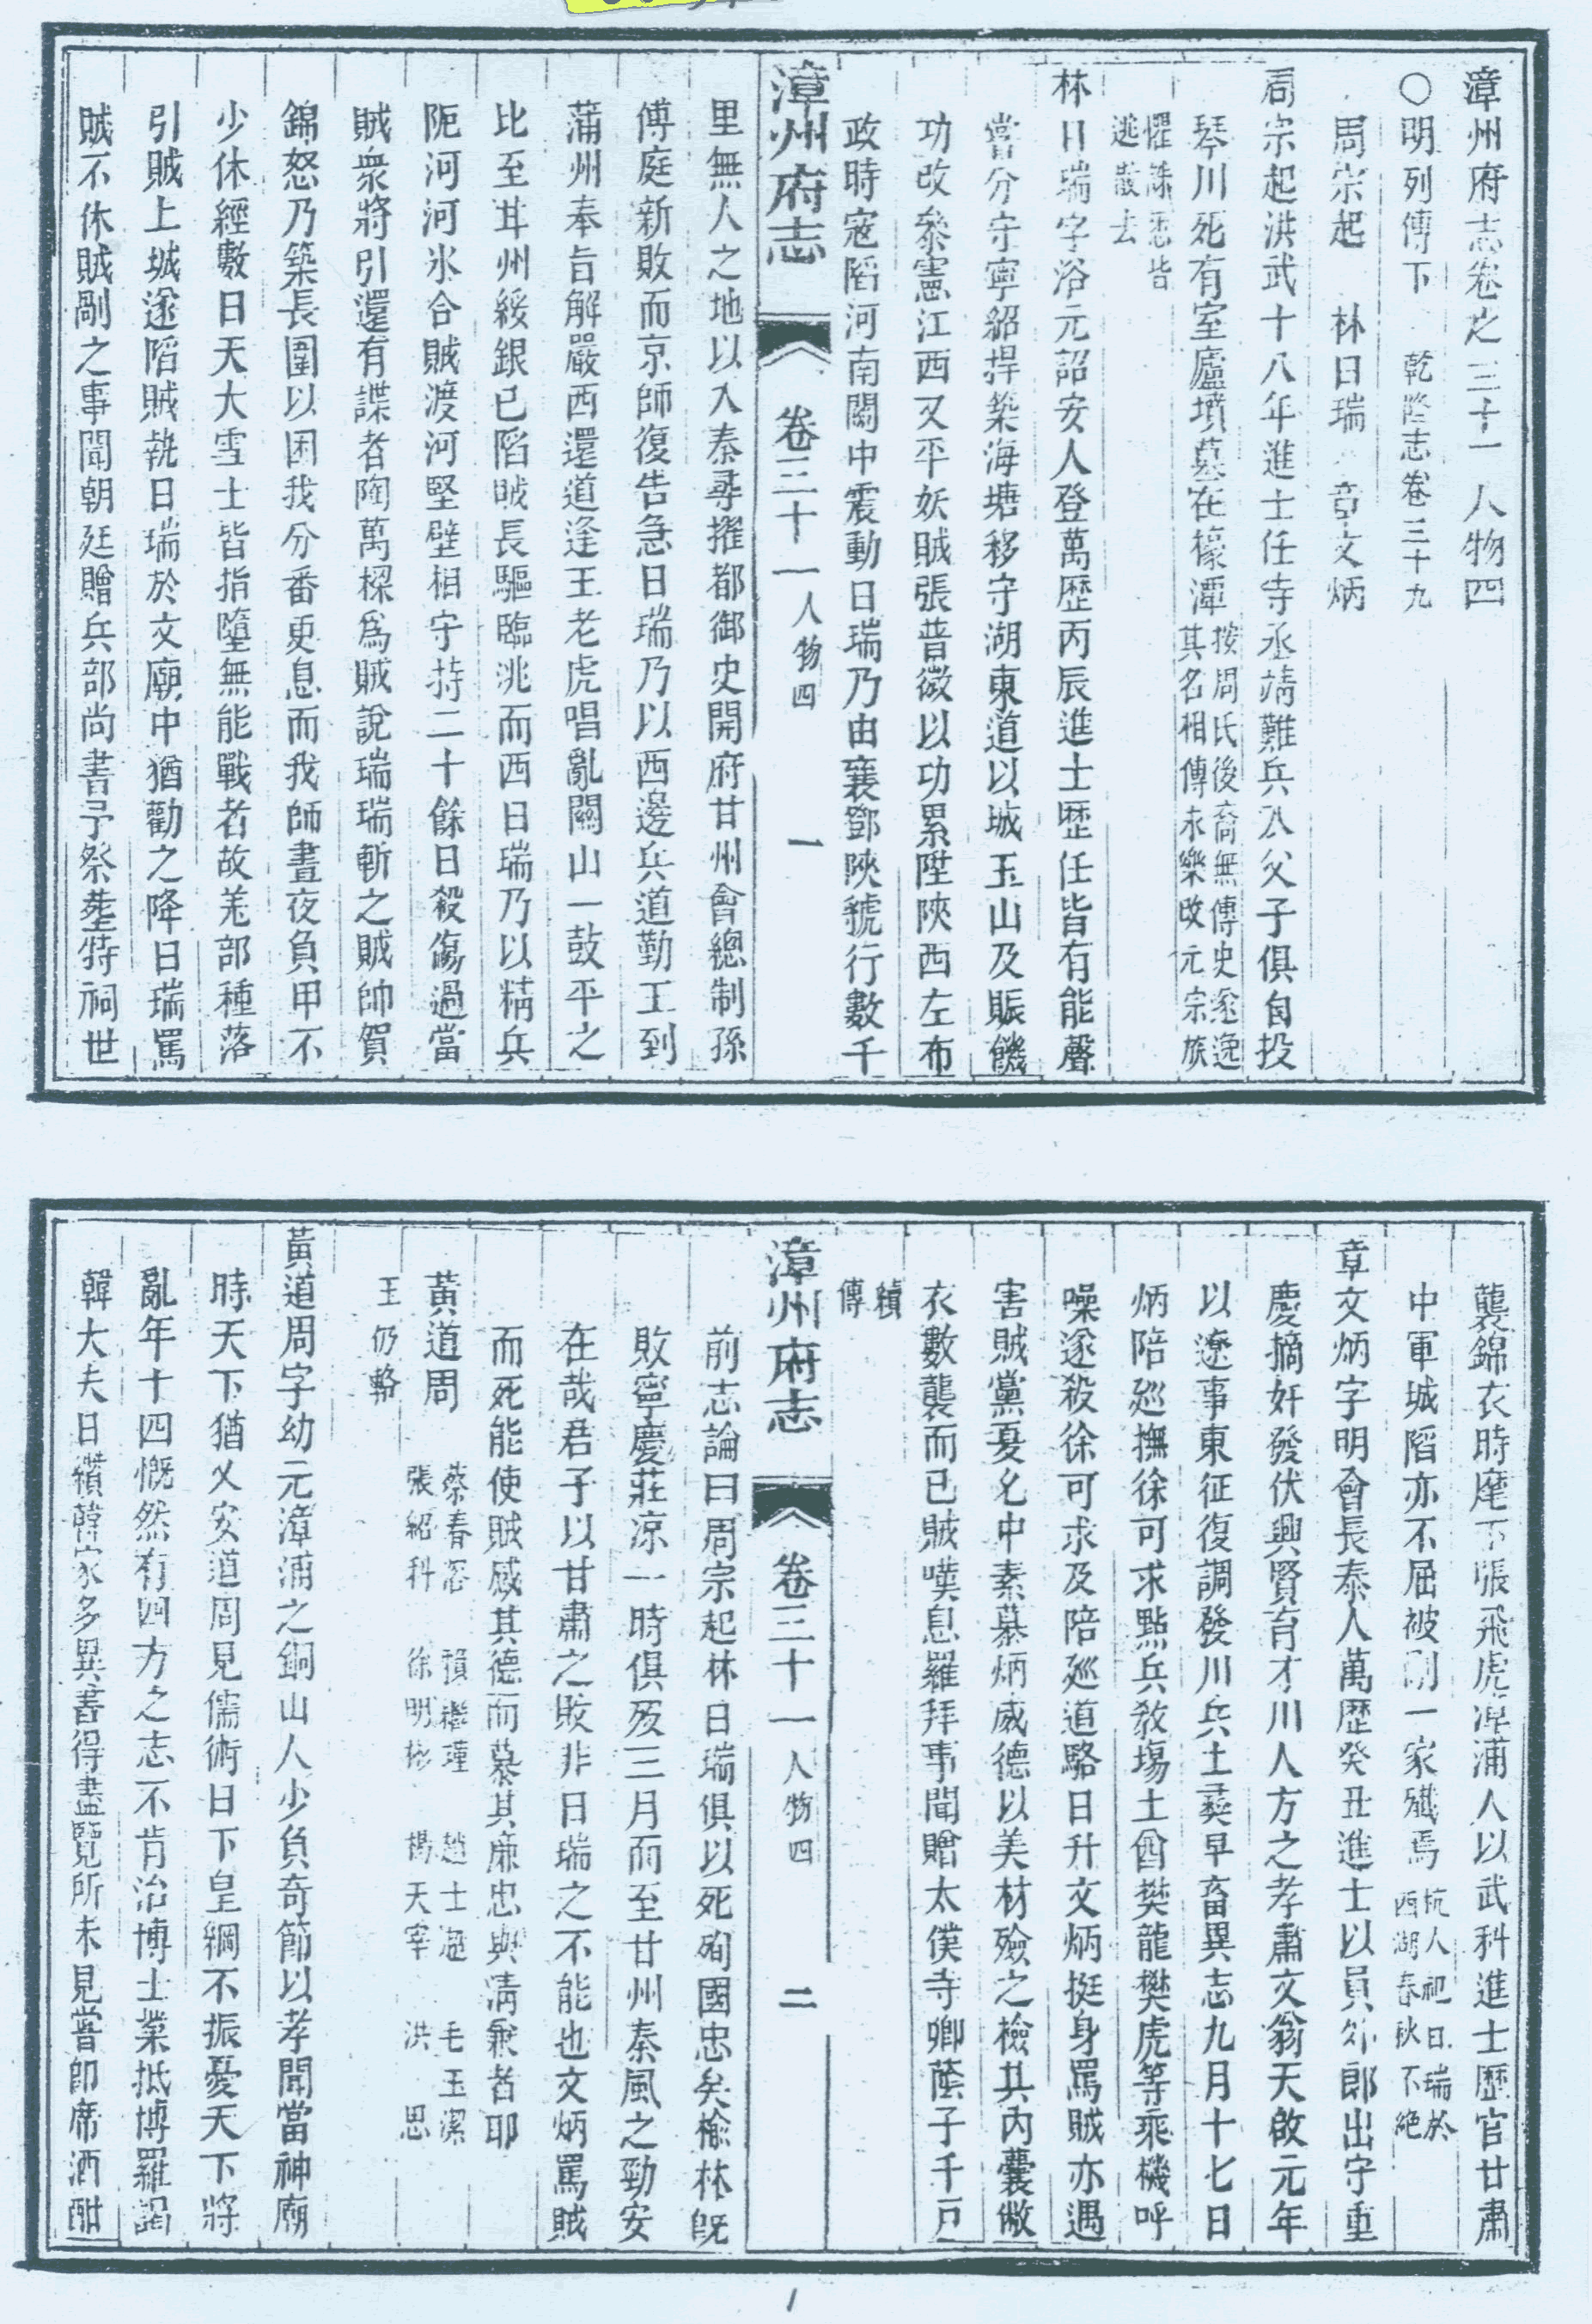 漳州府志卷之三十一 人物四
○明列傳下 乾隆志卷三十九
周宗起 林日瑞 章文炳
周宗起洪武十八年進士任寺丞靖難兵入父子俱自投
琴川死有室廬墳墓在椽潭
按周氏後裔無傳史遂逸
其名相傳永樂改元宗族
懼誅悉皆
逃散去
林日瑞字浴元詔安人登萬歷丙辰進士歷任皆有能聲
嘗分守寧紹捍築海塘移守湖東道以城玉山及賑饑
功改叅憲江西又平妖賊張普薇以功累陞陝西左布
政時寇陷河南關中震動日瑞乃由襄鄧陝虢行數千
漳州府志 卷三十一 人物四 一
里無人之地以入秦尋擢都御史開府甘州會總制孫
傅庭新敗而京師復告急日瑞乃以西邊兵道勤王到
蒲州奉旨解嚴西還道逢王老虎唱亂關山一鼓平之
比至甘州綏銀已陷賊長驅臨洮而西日瑞乃以精兵
阨河河氷合賊渡河堅壁相守持二十餘日殺傷過當
賊衆將引還有諜者陶萬樑爲賊說瑞瑞斬之賊帥賀
錦怒乃築長圍以困我分番更息而我師晝夜負甲不
少休經數日天大雪士皆指墮無能戰者故羌部種落
引賊上城遂陷賊執日瑞於文廟中猶勸之降日瑞罵
賊不休賊剮之事聞朝廷贈兵部尚書予祭塟特祠世
襲錦衣時麾下張飛虎漳浦人以武科進士歷官甘肅
中軍城陷亦不屈被剮一家殲焉
杭人祀日瑞於
西湖春秋不絕
章文炳字明會長泰人萬歷癸丑進士以員外郎出守重
慶摘奸發伏興賢育才川人方之孝肅文翁天啟元年
以遼事東征復調發川兵土彜早畜異志九月十七日
炳陪廵撫徐可求點兵敎場土酋樊龍樊虎等乘機呼
噪遂殺徐可求及陪廵道駱日升文炳挺身罵賊亦遇
害賊黨憂乞中素慕炳威德以美材殮之檢其內囊敝
衣數襲而已賊嘆息羅拜事聞贈太僕寺卿蔭子千戸
續
傳
漳州府志 卷三十一 人物四 二
前志論曰周宗起林日瑞俱以死殉國忠矣榆林旣
敗寧慶莊凉一時俱歿三月而至甘州秦風之勁安
在哉君子以甘肅之敗非日瑞之不能也文炳罵賊
而死能使賊感其德而慕其廉忠與淸兼者耶
黃道周
蔡春溶 賴繼瑾 趙士超 毛玉潔
張紹科 徐明彬 楊天宰 洪思
王仍輅
黃道周字幼元漳浦之銅山人少負奇節以孝聞當神廟
時天下猶乂安道周見儒術日下皇綱不振憂天下將
亂年十四慨然有四方之志不肯治博士業抵博羅謁
韓大夫日纘韓家多異書得盡覽所未見嘗卽席酒酣